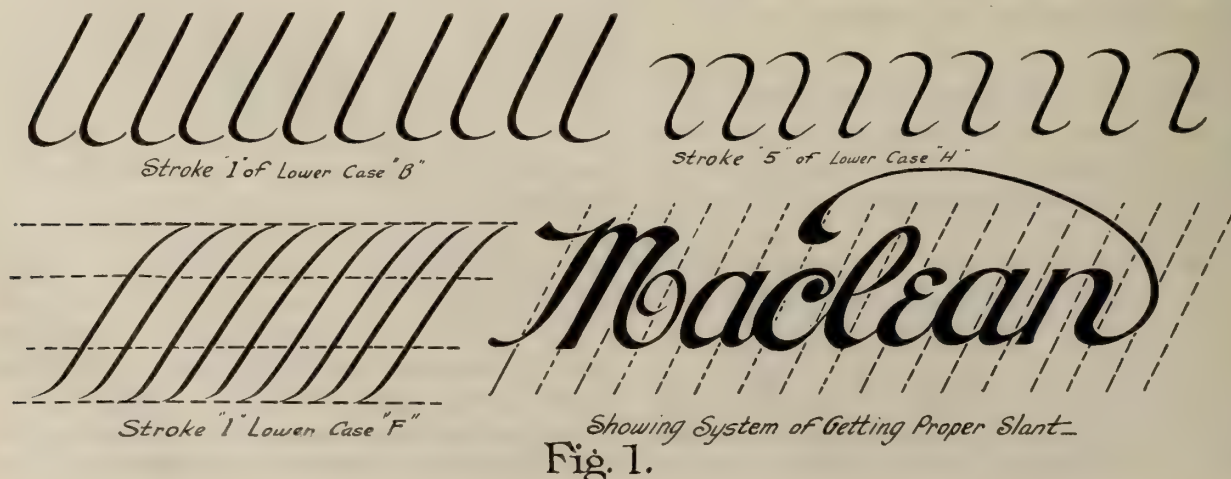 Stroke "1" of Lower Case "B"
Stroke "5" of Lower Case "H"
Maclean
Stroke "1" Lower Case "F"
Showing System of Getting Proper Slant—
Fig. 1.